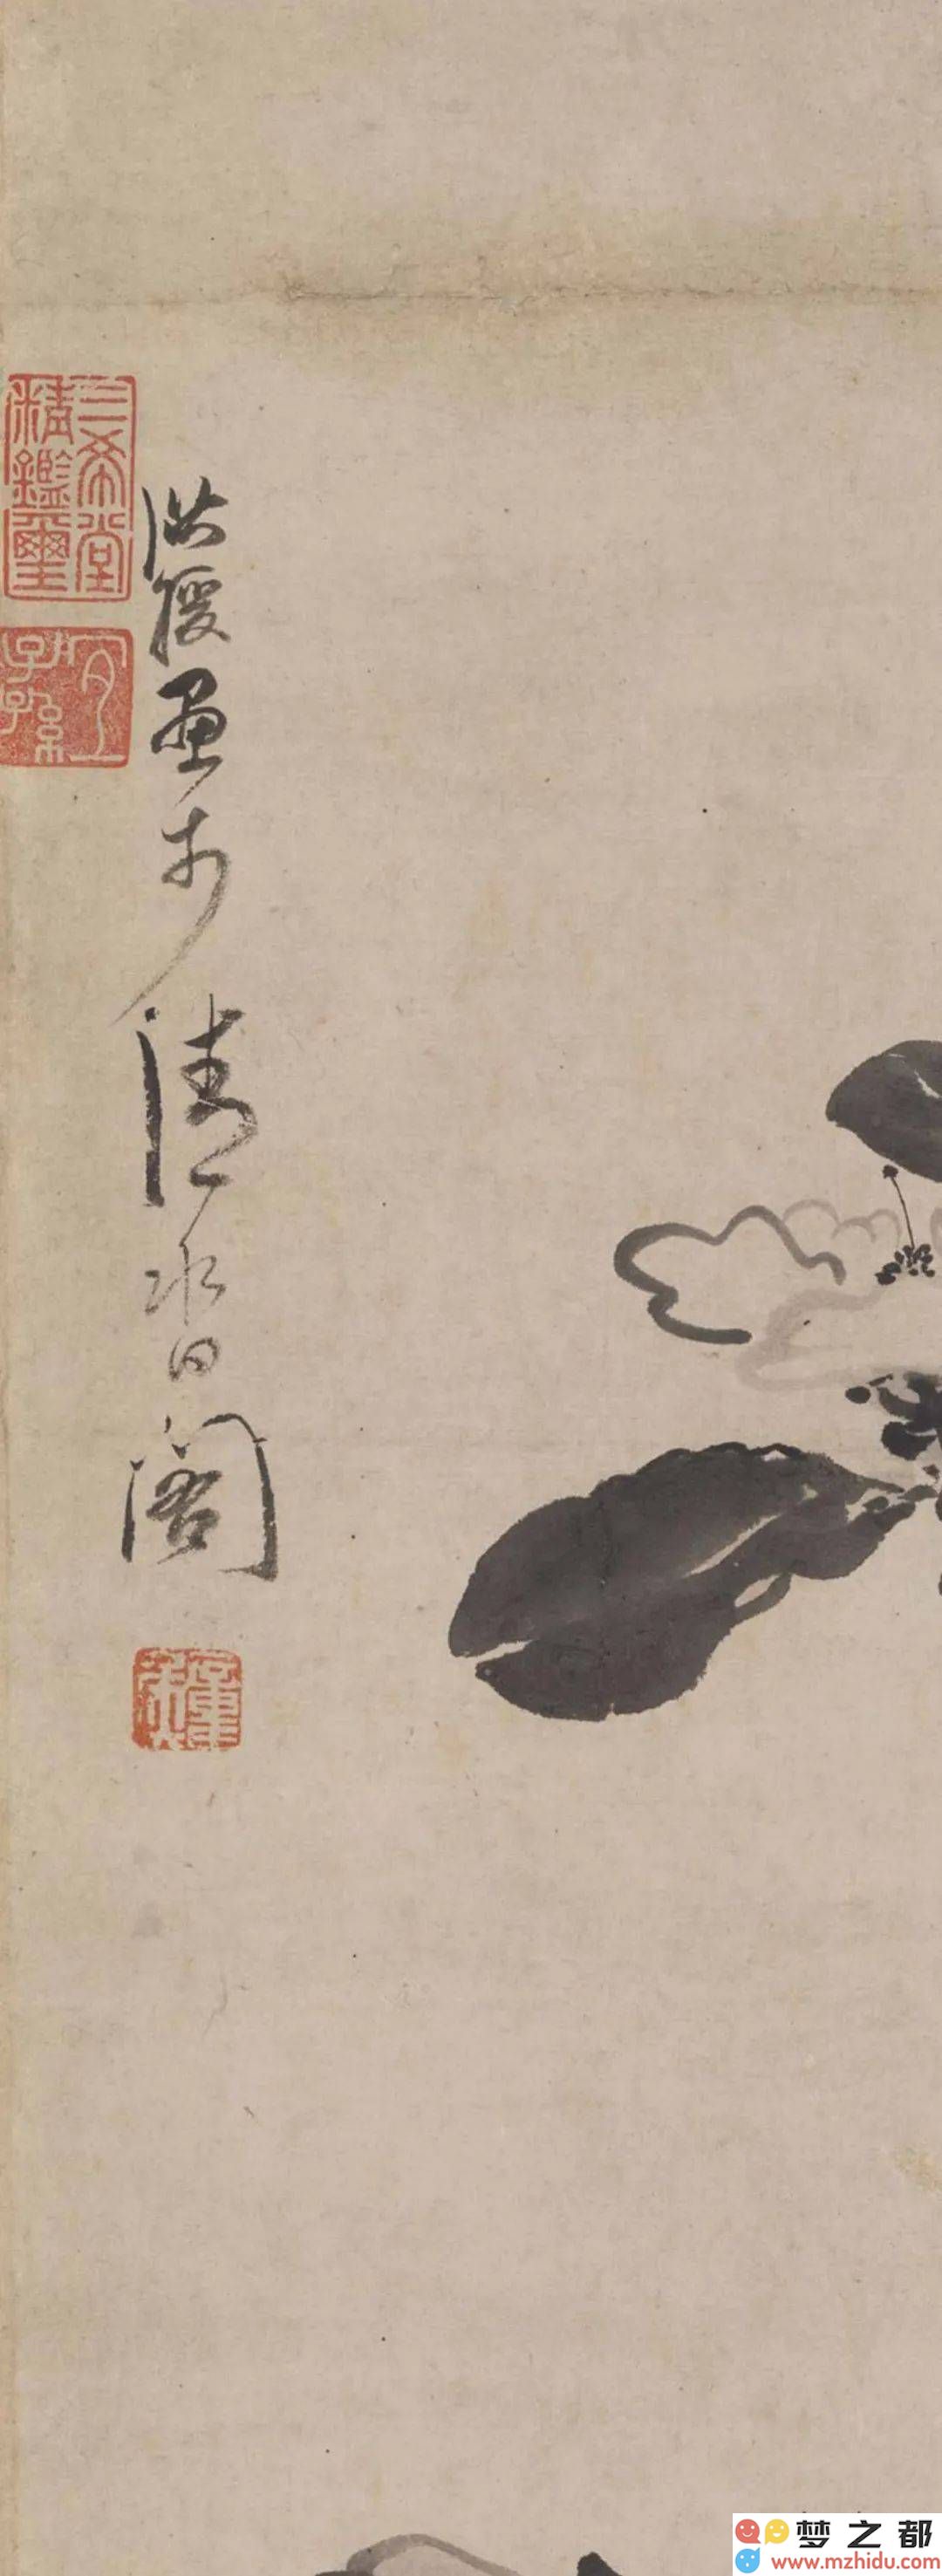 三希堂
精鑑璽
宜
子孫
洪綬畫於清水閣
梦之都
www.mzhidu.com